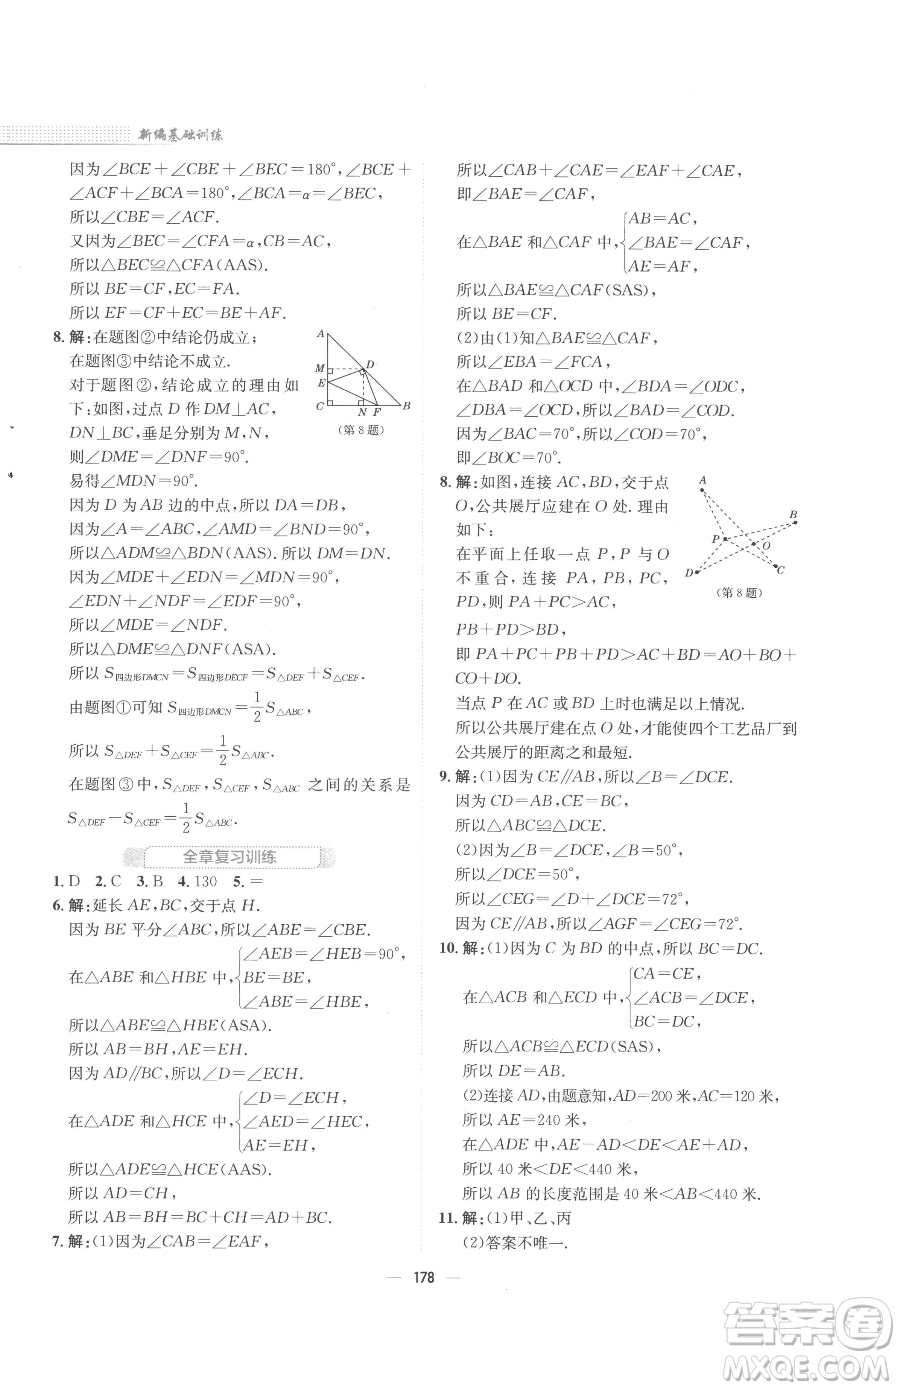 新编基础训练
因为∠BCE+∠CBE+∠BEC=180°,∠BCE+
∠ACF+∠BCA=180°,∠BCA=α=∠BEC,
所以∠CBE=∠ACF.
又因为∠BEC=∠CFA=α,CB=AC,
所以△BEC≌△CFA(AAS).
所以 BE=CF,EC=FA.
所以 EF=CF+EC=BE+AF.
8. 解:在题图②中结论仍成立;
在题图③中结论不成立.
对于题图②,结论成立的理由如
下:如图,过点 D 作 DM⊥AC,
DN⊥BC,垂足分别为 M,N,
则∠DME=∠DNF=90°.
易得∠MDN=90°.
因为 D 为 AB 边的中点,所以 DA=DB.
因为∠A=∠ABC,∠AMD=∠BND=90°,
所以△ADM≌△BDN(AAS).所以 DM=DN.
因为∠MDE+∠EDN=∠MDN=90°,
∠EDN+∠NDF=∠EDF=90°,
所以∠MDE=∠NDF.
所以△DME≌△DNF(ASA).
所以 S四边形DMCN=S四边形DECF=S△DEF+S△CEF.
由题图①可知 S四边形DMCN=1/2 S△ABC,
所以 S△DEF+S△CEF=1/2 S△ABC.
在题图③中,S△DEF,S△CEF,S△ABC 之间的关系是
S△DEF-S△CEF=1/2 S△ABC.
A
M
D
E
C
N
F
B
(第 8 题)
全章复习训练
1. D 2. C 3. B 4. 130 5. =
6. 解:延长 AE,BC,交于点 H.
因为 BE 平分∠ABC,所以∠ABE=∠CBE.
在△ABE 和△HBE 中,{∠AEB=∠HEB=90°,
BE=BE,
∠ABE=∠HBE,
所以△ABE≌△HBE(ASA).
所以 AB=BH,AE=EH.
因为 AD∥BC,所以∠D=∠ECH.
在△ADE 和△HCE 中,{∠D=∠ECH,
∠AED=∠HEC,
AE=EH,
所以△ADE≌△HCE(AAS).
所以 AD=CH,
所以 AB=BH=BC+CH=AD+BC.
7. 解:(1)因为∠CAB=∠EAF,
所以∠CAB+∠CAE=∠EAF+∠CAE,
即∠BAE=∠CAF.
在△BAE 和△CAF 中,{AB=AC,
∠BAE=∠CAF,
AE=AF,
所以△BAE≌△CAF(SAS),
所以 BE=CF.
(2)由(1)知△BAE≌△CAF,
所以∠EBA=∠FCA,
在△BAD 和△OCD 中,∠BDA=∠ODC,
∠DBA=∠OCD,所以∠BAD=∠COD.
因为∠BAC=70°,所以∠COD=70°,
即∠BOC=70°.
8. 解:如图,连接 AC,BD,交于点
O,公共展厅应建在 O 处. 理由
如下:
在平面上任取一点 P,P 与 O
不重合,连接 PA,PB,PC,
PD,则 PA+PC>AC,
PB+PD>BD,
即 PA+PC+PB+PD>AC+BD=AO+BO+
CO+DO.
当点 P 在 AC 或 BD 上时也满足以上情况.
所以公共展厅建在点 O 处,才能使四个工艺品厂到
公共展厅的距离之和最短.
A
B
P
O
D
C
(第 8 题)
9. 解:(1)因为 CE∥AB,所以∠B=∠DCE.
因为 CD=AB,CE=BC,
所以△ABC≌△DCE.
(2)因为∠B=∠DCE,∠B=50°,
所以∠DCE=50°,
所以∠CEG=∠DCE+∠D=72°.
因为 CE∥AB,所以∠AGF=∠CEG=72°.
10. 解:(1)因为 C 为 BD 的中点,所以 BC=DC.
在△ACB 和△ECD 中,{CA=CE,
∠ACB=∠DCE,
BC=DC,
所以△ACB≌△ECD(SAS),
所以 DE=AB.
(2)连接 AD,由题意知,AD=200 米,AC=120 米,
所以 AE=240 米.
在△ADE 中,AE-AD<DE<AD+AE,
所以 40 米<DE<440 米.
所以 AB 的长度范围是 40 米<AB<440 米.
11. 解:(1)甲、乙、丙
(2)答案不唯一.
— 178 —
答案圈
MXQE.COM